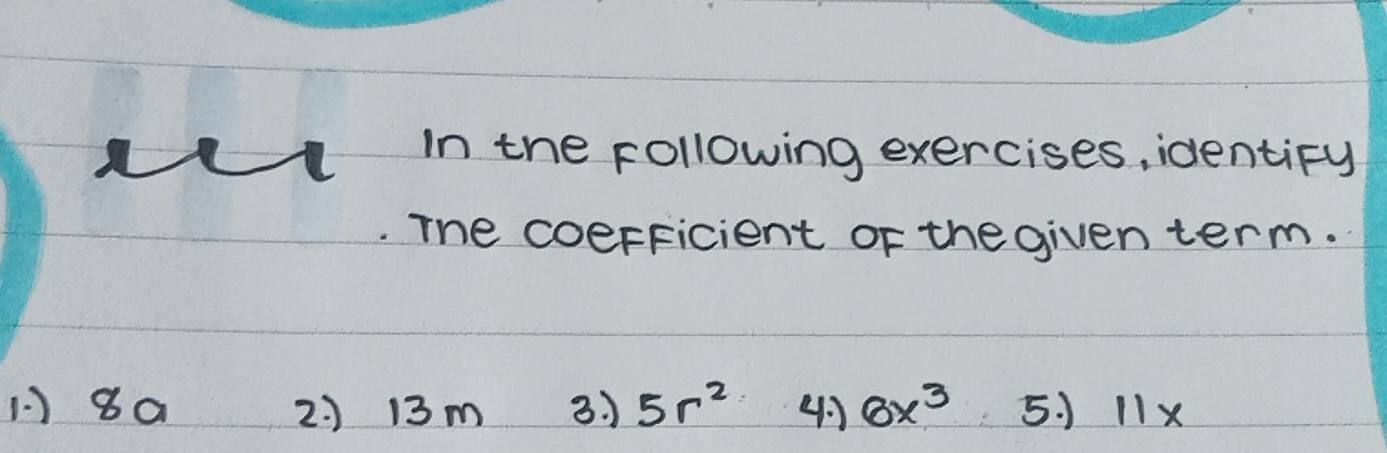 In the Following exercises, identify
. The coefficient of the given term.
1.) 8a 2.) 13m 3.) 5r² 4.) 6x³ 5.) 11x